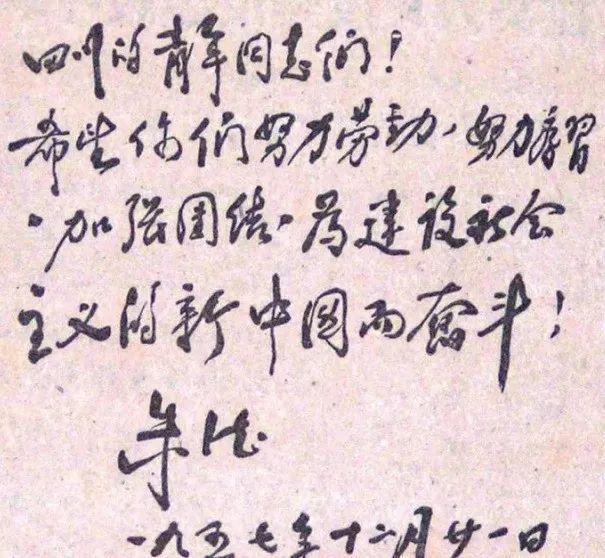 四川的青年同志们！
希望你们努力劳动、努力学習
、加强团结、为建设社会
主义的新中国而奋斗！
朱德
一九五七年十二月廿一日